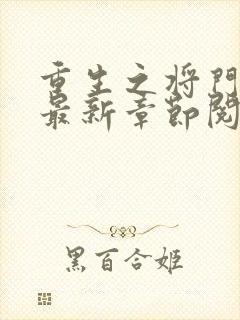 重生之将門
最新章節閱
黑百合姬